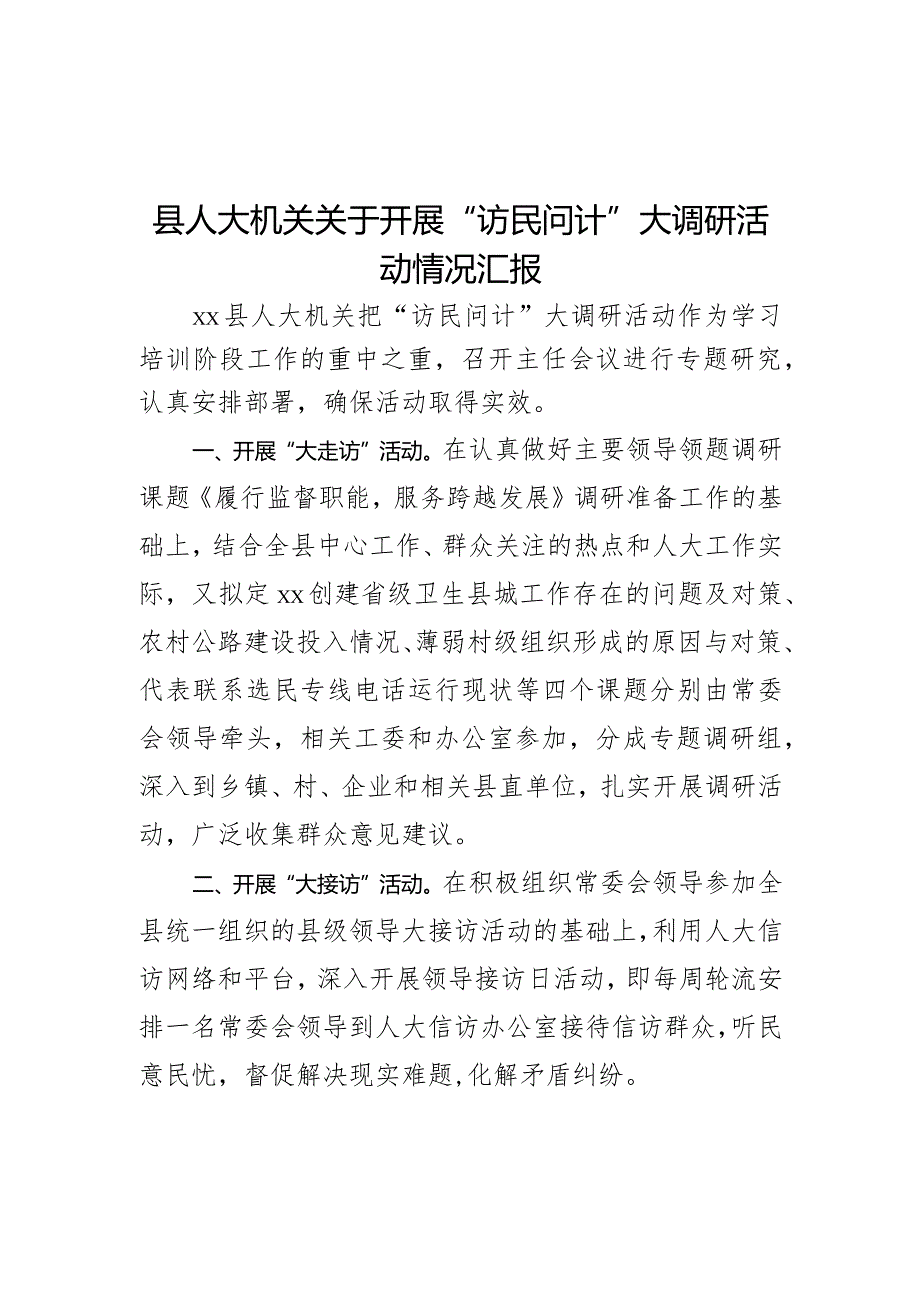 县人大机关关于开展“访民问计”大调研活
动情况汇报
xx县人大机关把“访民问计”大调研活动作为学习
培训阶段工作的重中之重，召开主任会议进行专题研究，
认真安排部署，确保活动取得实效。
一、开展“大走访”活动。在认真做好主要领导领题调研
课题《履行监督职能，服务跨越发展》调研准备工作的基
础上，结合全县中心工作、群众关注的热点和人大工作实
际，又拟定xx创建省级卫生县城工作存在的问题及对策、
农村公路建设投入情况、薄弱村级组织形成的原因与对策、
代表联系选民专线电话运行现状等四个课题分别由常委
会领导牵头，相关工委和办公室参加，分成专题调研组，
深入到乡镇、村、企业和相关县直单位，扎实开展调研活
动，广泛收集群众意见建议。
二、开展“大接访”活动。在积极组织常委会领导参加全
县统一组织的县级领导大接访活动的基础上，利用人大信
访网络和平台，深入开展领导接访日活动，即每周轮流安
排一名常委会领导到人大信访办公室接待信访群众，听民
意民忧，督促解决现实难题,化解矛盾纠纷。